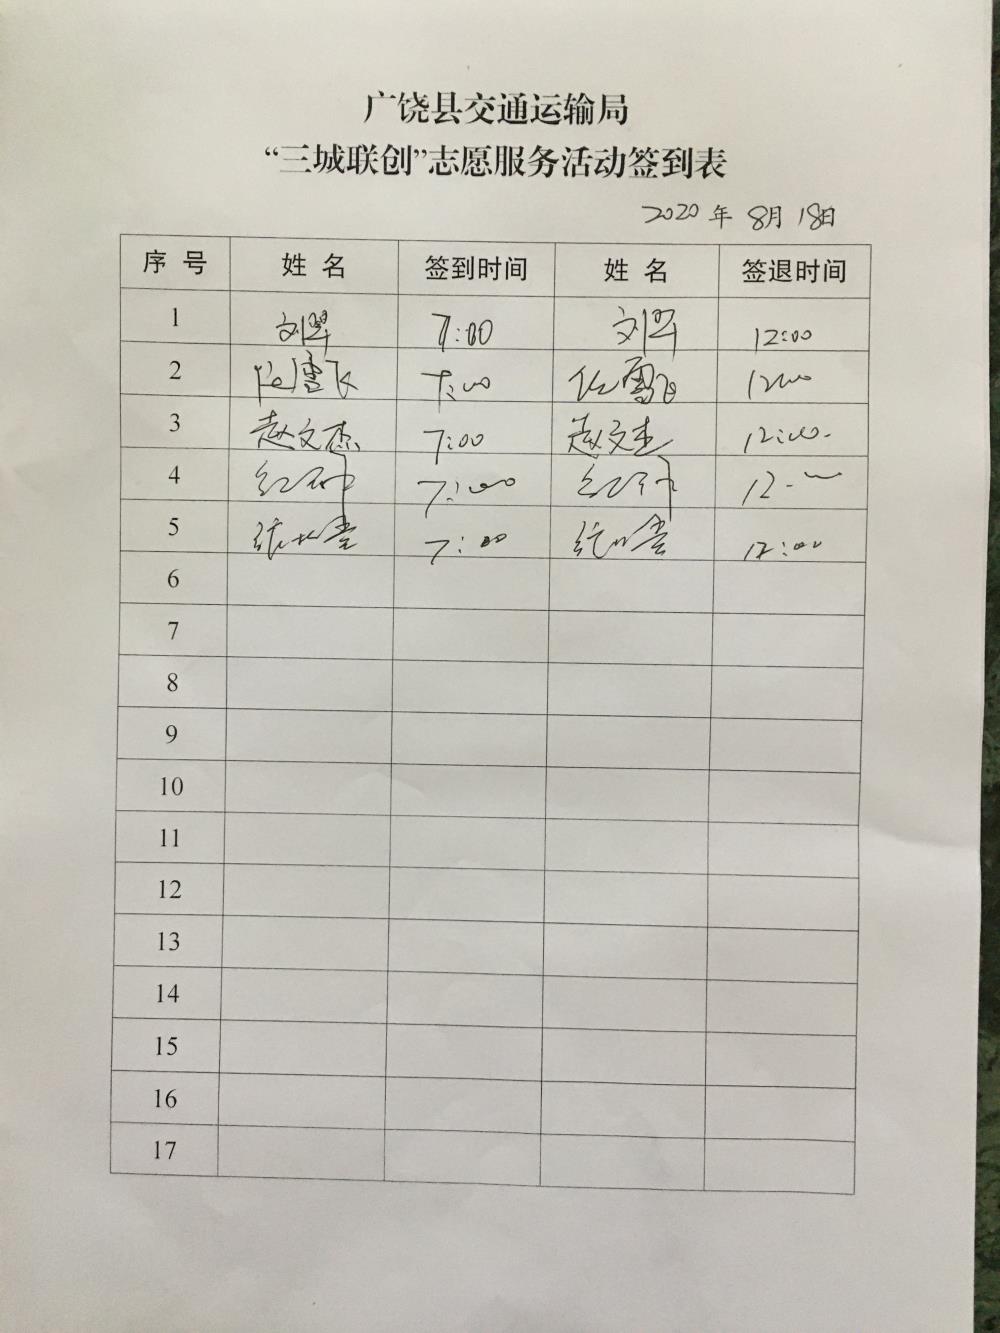 广饶县交通运输局
“三城联创”志愿服务活动签到表
2020 年 8月 18日
序 号 姓 名 签到时间 姓 名 签退时间
1 7:00 12:00
2 雪飞 7:00 雪飞 12:00
3 赵文杰 7:00 赵文杰 12:00
4 7:00 12:00
5 7:00 12:00
6
7
8
9
10
11
12
13
14
15
16
17